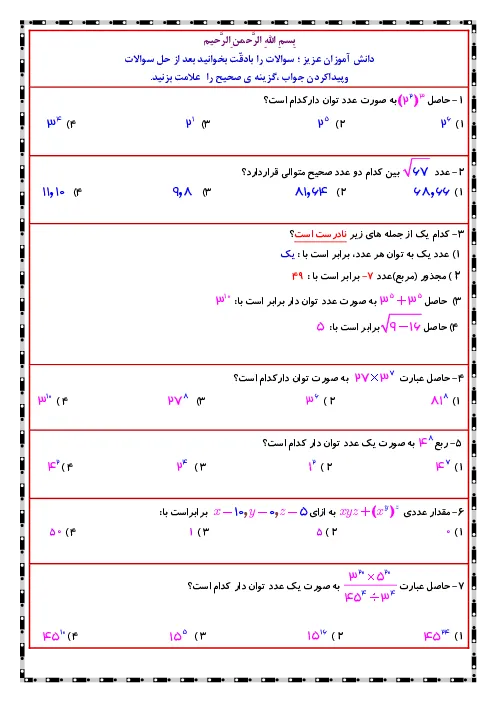 بِسمِ اللهِ الرَّحمنِ الرَّحیم
دانش آموزان عزیز ؛ سوالات را بادقّت بخوانید بعد از حل سوالات
وپیداکردن جواب ،گزینه ی صحیح را علامت بزنید.
۱- حاصل (۲^۲)^۳ به صورت عدد توان دارکدام است؟
۱) ۲^۶ ۲) ۲^۵ ۳) ۲^۱ ۴) ۳^۴
۲- عدد √۶۷ بین کدام دو عدد صحیح متوالی قراردارد؟
۱) ۶۶و۶۸ ۲) ۶۴و۸۱ ۳) ۸و۹ ۴) ۱۰و۱۱
۳- کدام یک از جمله های زیر نادرست است؟
۱) عدد یک به توان هر عدد، برابر است با : یک
۲ ) مجذور (مربع)عدد ۷- برابر است با : ۴۹
۳) حاصل ۳^۵+۳^۵ به صورت عدد توان دار برابر است با: ۳^۱۰
۴) حاصل √۹-۱۶ برابر است با: ۵
۴- حاصل عبارت ۲۷×۳^۷ به صورت توان دارکدام است؟
۱) ۸۱^۸ ۲ ) ۳^۶ ۳) ۲۷^۸ ۴ ) ۳^۱۰
۵- ربع ۴^۸ به صورت یک عدد توان دار کدام است؟
۱) ۴^۷ ۲ ) ۱^۲ ۳ ) ۲^۴ ۴ ) ۴^۲
۶- مقدار عددی xyz+(x^y)^z به ازای x=۱۰و y=۰و z=۵ برابراست با:
۱ ) ۰ ۲ ) ۵ ۳ ) ۱ ۴ ) ۵۰
۷- حاصل عبارت (۳^۲۰×۵^۲۰)/(۴۵^۴÷۳^۴) به صورت یک عدد توان دار کدام است؟
۱) ۴۵^۲۴ ۲ ) ۱۵^۱۶ ۳ ) ۱۵^۵ ۴ ) ۴۵^۱۰